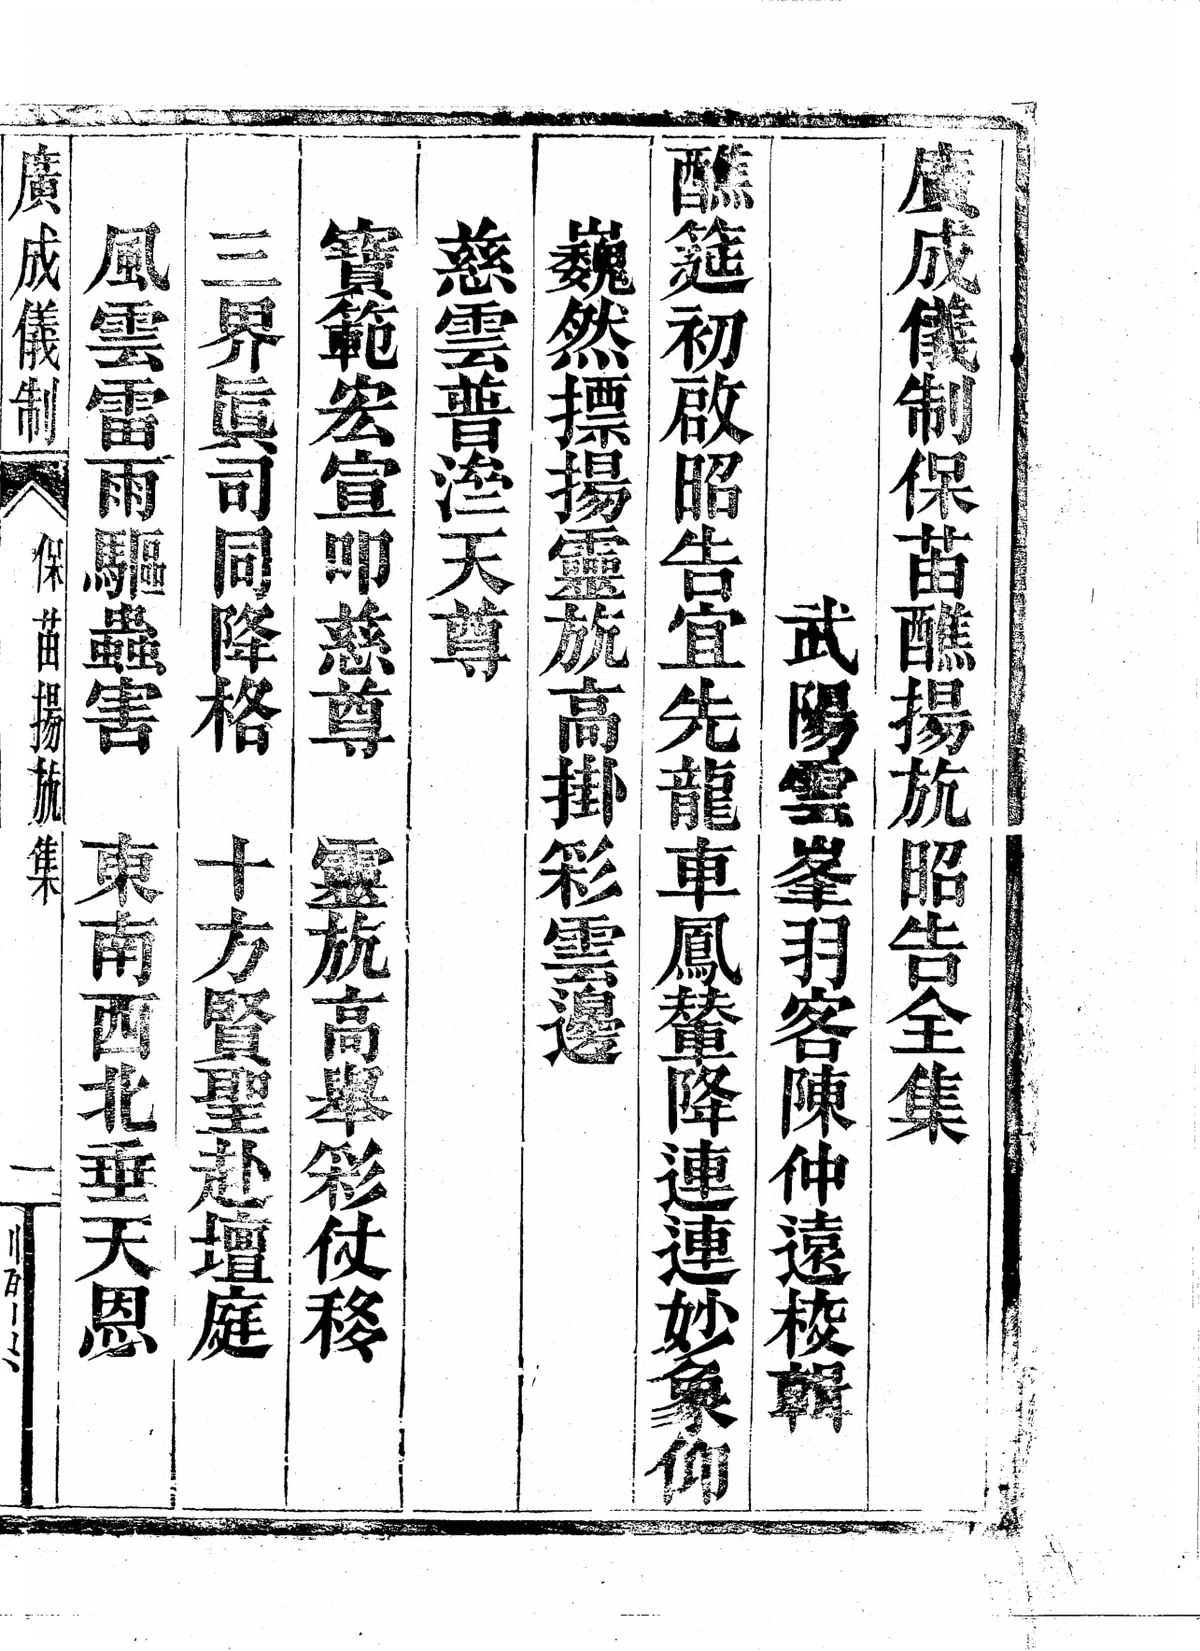 廣成儀制保苗醮揚旊昭告全集
武陽雲峯羽客陳仲遠校輯
醮筵初啟昭告宜先龍車鳳輦降連連妙象仰
巍然摽揚靈旊高掛彩雲邊
慈雲普濟天尊
寶範宏宣叩慈尊　靈旊高舉彩仗移
三界眞司同降格　十方賢聖赴壇庭
風雲雷雨驅蟲害　東南西北垂天恩
廣成儀制　保苗揚旊集　一